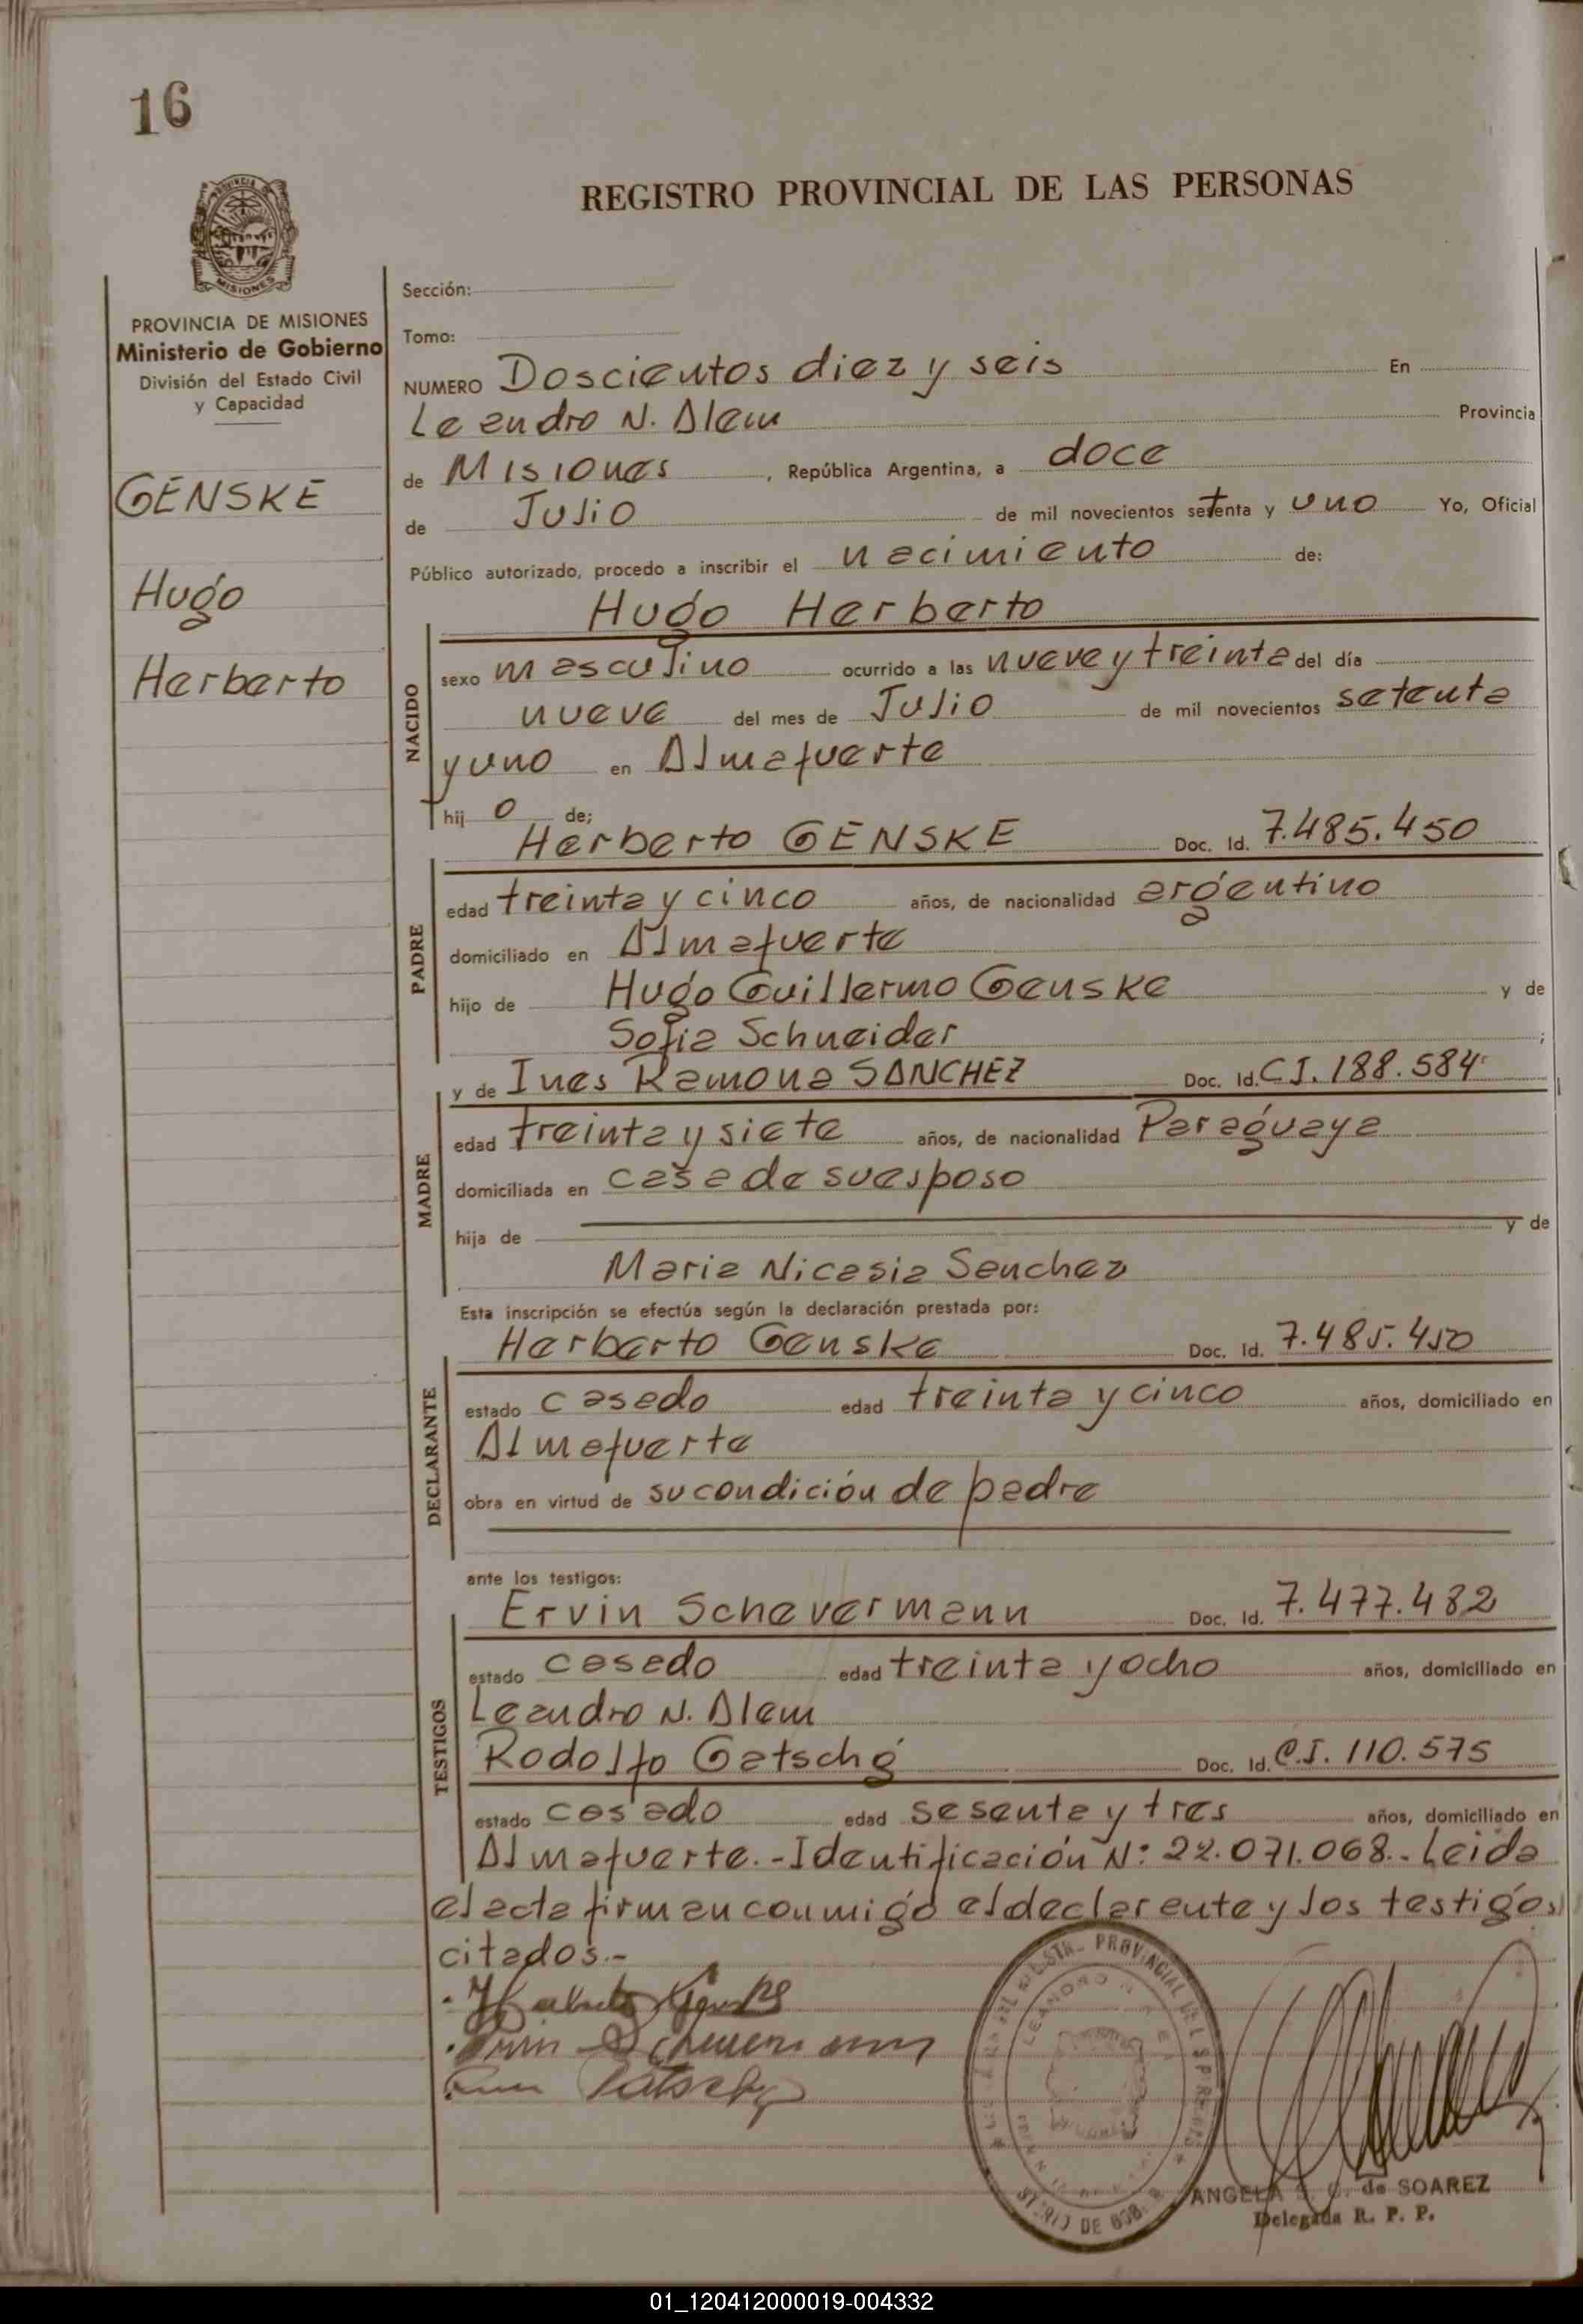 16
REGISTRO PROVINCIAL DE LAS PERSONAS
MISIONES
PROVINCIA DE MISIONES
Ministerio de Gobierno
División del Estado Civil
y Capacidad
GENSKE
Hugo
Herberto
Sección:
Tomo:
NUMERO Doscientos diez y seis En
Leandro N. Alem Provincia
de Misiones, República Argentina, a doce
de Julio de mil novecientos setenta y uno Yo, Oficial
Público autorizado, procedo a inscribir el nacimiento de:
Hugo Herberto
NACIDO
sexo masculino ocurrido a las nueve y treinta del día
nueve del mes de Julio de mil novecientos setenta
y uno en Almafuerte
hij o de;
Herberto GENSKE Doc. Id. 7.485.450
PADRE
edad treinta y cinco años, de nacionalidad argentino
domiciliado en Almafuerte
hijo de Hugo Guillermo Genske y de
Sofia Schneider ;
y de Ines Ramona SANCHEZ Doc. Id. C I. 188.584
MADRE
edad treinta y siete años, de nacionalidad Paraguaya
domiciliada en casa de su esposo
hija de y de
Maria Nicasia Sanchez
Esta inscripción se efectúa según la declaración prestada por:
Herberto Genske Doc. Id. 7.485.450
DECLARANTE
estado casado edad treinta y cinco años, domiciliado en
Almafuerte
obra en virtud de su condición de padre
ante los testigos:
Ervin Schevermann Doc. Id. 7.477.482
TESTIGOS
estado casado edad treinta y ocho años, domiciliado en
Leandro N. Alem
Rodolfo Gatschg Doc. Id. C.I. 110.575
estado casado edad sesenta y tres años, domiciliado en
Almafuerte.-Identificación N: 22.071.068.- Leida
el acta firman conmigo el declarante y los testigos
citados.-
ANGELA S. C. de SOAREZ
Delegada R. P. P.
01_120412000019-004332